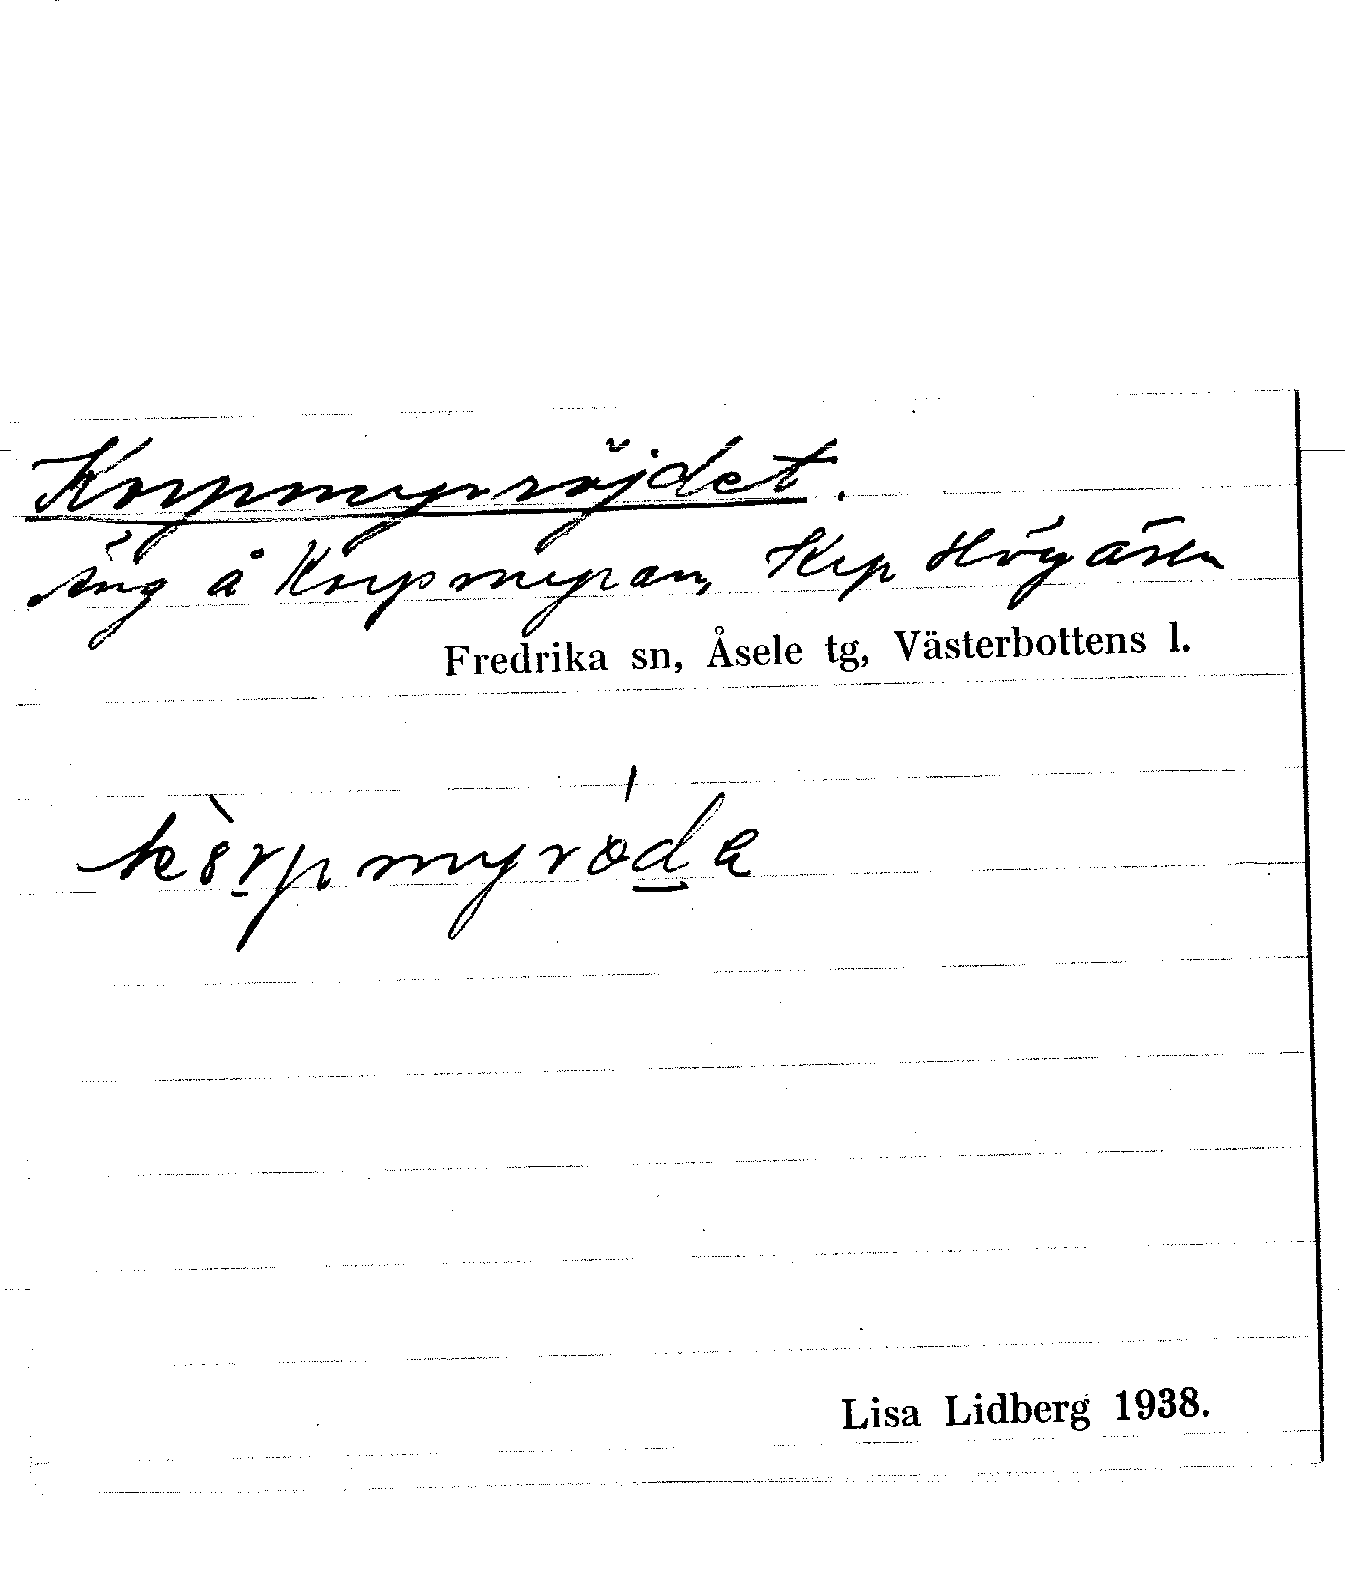 Korpmyrröjdet.
Äng å Korpmyran, Krp Högåsen
Fredrika sn, Åsele tg, Västerbottens l.
Lisa Lidberg 1938.